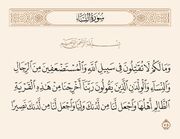 سُورَةُ النِّسَاءِ
بِسْمِ اللَّهِ الرَّحْمَٰنِ الرَّحِيمِ
وَمَا لَكُمْ لَا تُقَاتِلُونَ فِي سَبِيلِ اللَّهِ وَالْمُسْتَضْعَفِينَ مِنَ الرِّجَالِ
وَالنِّسَاءِ وَالْوِلْدَانِ الَّذِينَ يَقُولُونَ رَبَّنَا أَخْرِجْنَا مِنْ هَٰذِهِ الْقَرْيَةِ
الظَّالِمِ أَهْلُهَا وَاجْعَل لَّنَا مِن لَّدُنكَ وَلِيًّا وَاجْعَل لَّنَا مِن لَّدُنكَ نَصِيرًا
٧٥